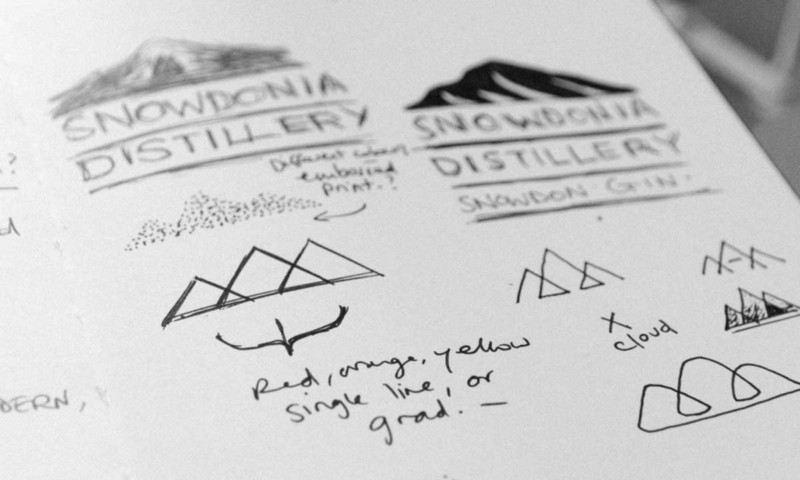 SNOWDONIA
DISTILLERY
SNOWDONIA
DISTILLERY
SNOWDON GIN.
Different when
embossed
print.?
Red, orange, yellow
single line, or
grad. —
X
cloud
DERN,